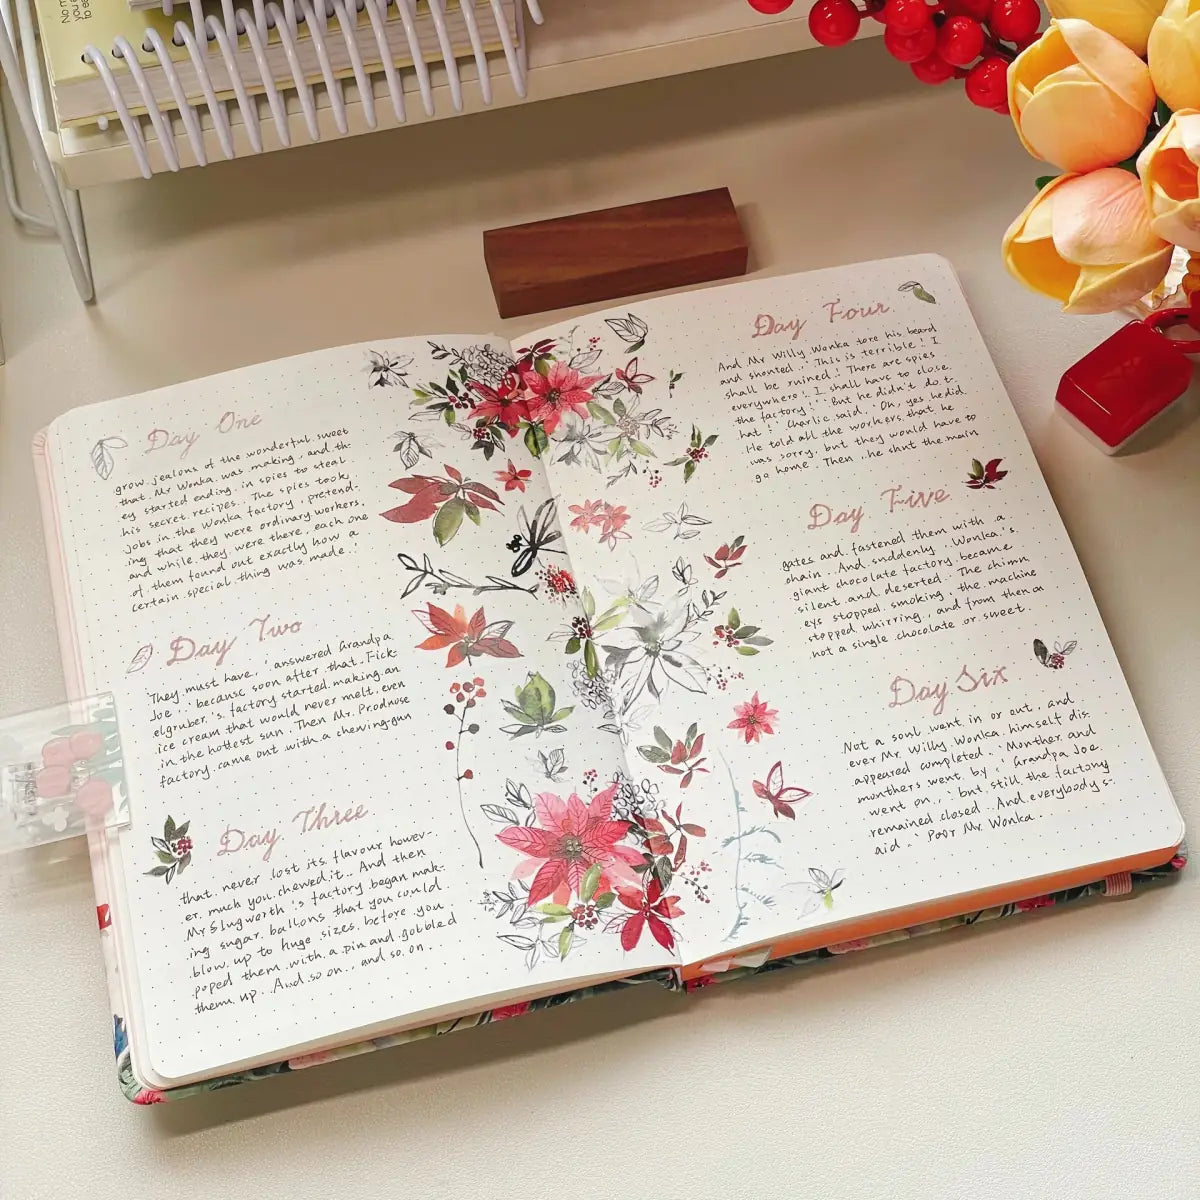 Day One
grow jealous of the wonderful sweet
that Mr Wonka was making, and th-
ey started ending in spies to steal
his secret recipes. The spies took
jobs in the Wonka factory, pretend-
ing that they were ordinary workers,
and while they were there, each one
of them found out exactly how a
certain special thing was made.
Day Two
'They must have,' answered Grandpa
Joe, 'because soon after that, Fick-
elgruber's factory started making an
ice cream that would never melt, even
in the hottest sun. Then Mr. Prodnose
factory came out with a chewing-gum
Day Three
that never lost its flavour howev-
er much you chewed it. And then
Mr Slugworth's factory began mak-
ing sugar ballons that you could
blow up to huge sizes before you
poped them with a pin and gobbled
them up. And so on, and so on..
Day Four
And Mr Willy Wonka tore his beard
and shouted, 'This is terrible! I
shall be ruined! There are spies
everywhere! I shall have to close
the factory!' 'But he didn't do t-
hat!' Charlie said. 'Oh, yes he did.
He told all the workers that he
was sorry, but they would have to
go home. Then, he shut the main
Day Five
gates and fastened them with a
chain. And suddenly, Wonka's
giant chocolate factory became
silent and deserted. The chimn
eys stopped smoking, the machine
stopped whirring, and from then a
not a single chocolate or sweet.
Day Six
Not a soul went in or out, and
ever Mr Willy Wonka himself dis-
appeared completed. 'Monther and
monthers went by,' Grandpa Joe
went on, 'but still the factory
remained closed. And everybody s-
aid, 'Poor Mr Wonka.